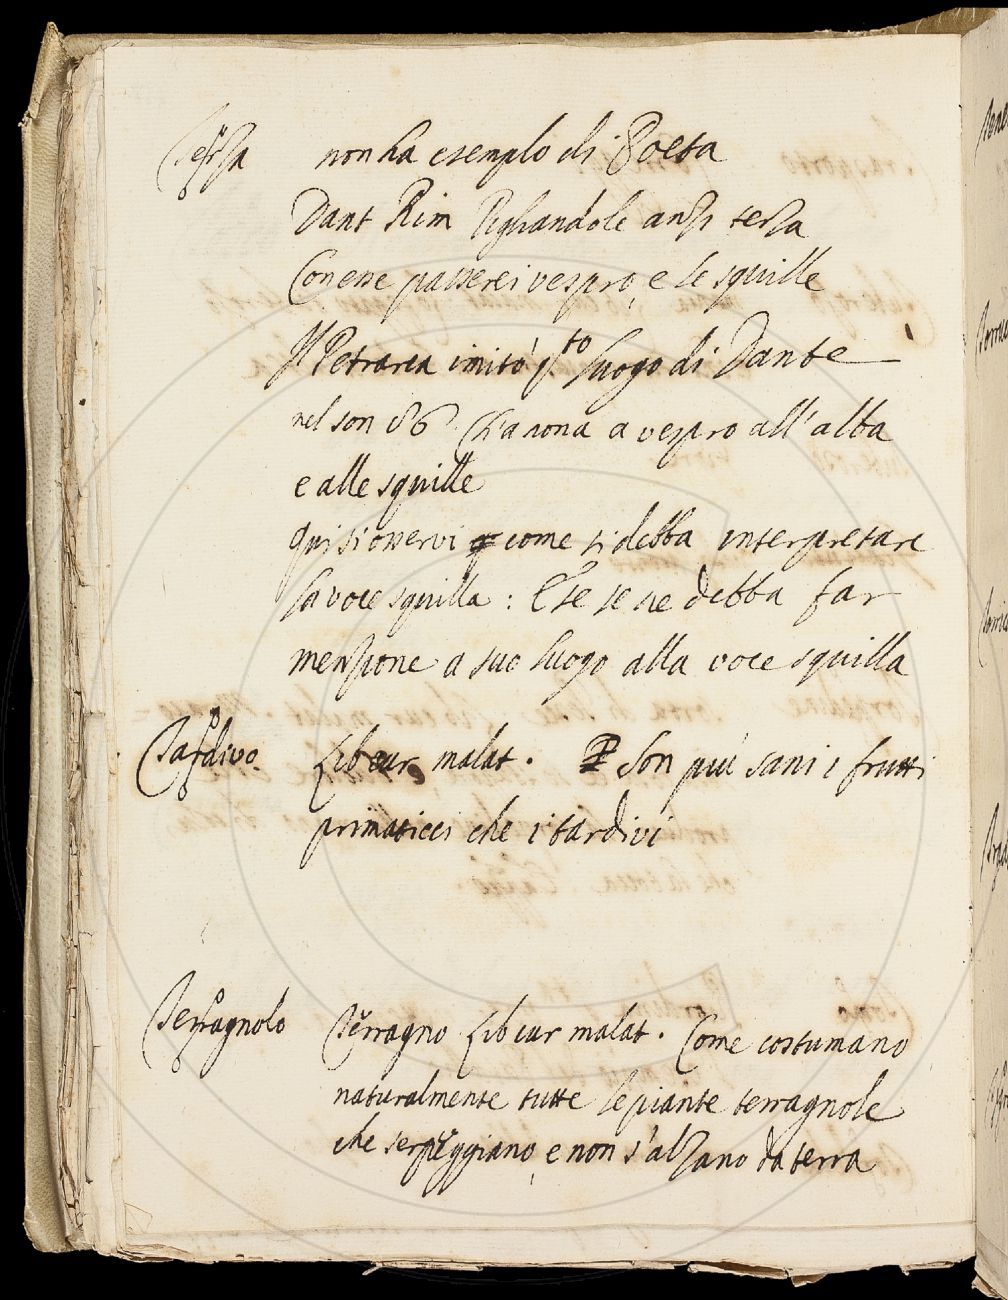 Terza non ha esemplo di Poeta
Dant Rim Pigliandole anzi terza
Con esse passerei vespro, e le squille
Il Petrarca imitò q.to luogo di Dante
nel son 86 Ch'a nona a vespro all'alba
e alle squille
Qui si osservi come si debba interpretare
la voce squilla: E se se ne debba far
menzione a suo luogo alla voce squilla
Tardivo. Lib cur malat. Son più sani i frutti
primaticci che i tardivi
Terragnolo Terragno Lib cur malat. Come costumano
naturalmente tutte le piante terragnole
che serpeggiano, e non s'alzano da terra